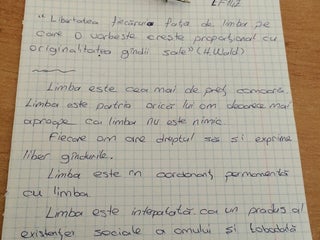 "Libertatea fiecăruia față de limba pe
care o vorbește crește proporțional cu
originalitatea gîndii sale" (H. Wald)
Limba este cea mai de preț comoară.
Limba este patria orică lui om deoarece mai
aproape ca limba nu este nimic.
Fiecare om are dreptul să și exprime
liber gîndurile.
Limba este în concordanță permanentă
cu limba.
Limba este intepatată ca un produs al
existenței sociale a omului și totodată